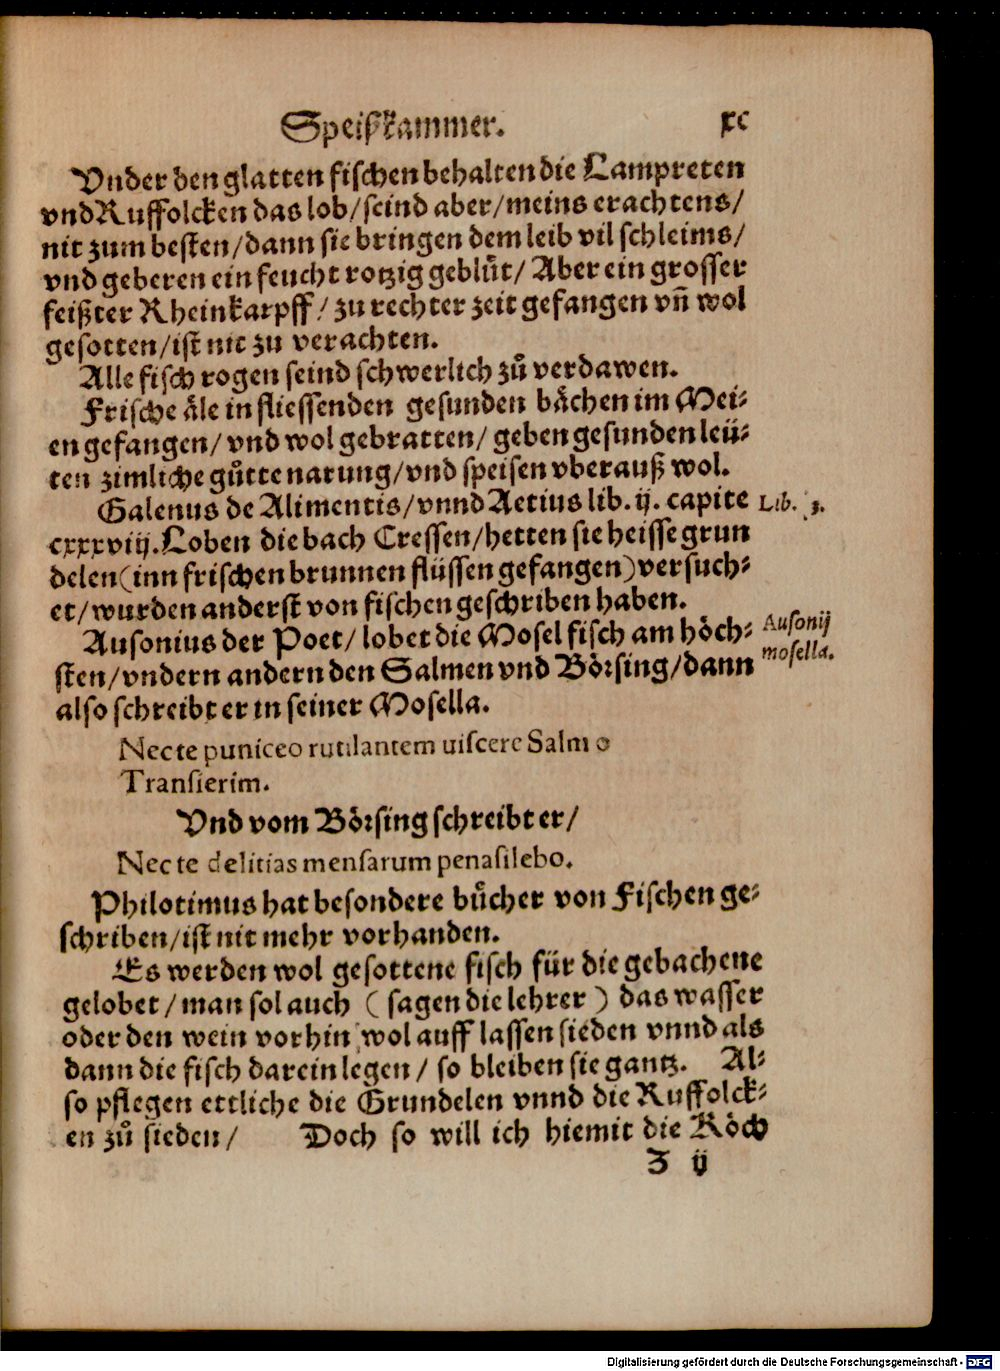 Speißkammer. xc
Vnder den glatten fischen behalten die Lampreten
vnd Ruffolcken das lob/seind aber/meins erachtens/
nit zum besten/dann sie bringen dem leib vil schleims/
vnd geberen ein feucht rotzig geblůt/ Aber ein grosser
feißter Rheinkarpff/ zu rechter zeit gefangen vñ wol
gesotten/ist nit zu verachten.
Alle fisch rogen seind schwerlich zů verdawen.
Frische äle in fliessenden gesunden bächen im Mei⸗
en gefangen/ vnd wol gebratten/ geben gesunden leü⸗
ten zimliche gůtte narung/vnd speisen vberauß wol.
Galenus de Alimentis/vnnd Aetius lib. ij. capite Lib. 3.
cxxxviij. Loben die bach Cressen/hetten sie heisse grun
delen(inn frischen brunnen flüssen gefangen)versuch⸗
et/wurden anderst von fischen geschriben haben.
Ausonius der Poet/ lobet die Mosel fisch am höch⸗ Ausonij
sten/vndern andern den Salmen vnd Börsing/dann mosella.
also schreibt er in seiner Mosella.
Nec te puniceo rutilantem uiscere Salmo
Transierim.
Vnd vom Börsing schreibt er/
Nec te delitias mensarum penasilebo.
Philotimus hat besondere bücher von Fischen ge⸗
schriben/ist nit mehr vorhanden.
Es werden wol gesottene fisch für die gebachene
gelobet/man sol auch ( sagen die lehrer ) das wasser
oder den wein vorhin wol auff lassen sieden vnnd als
dann die fisch darein legen/ so bleiben sie gantz. Al⸗
so pflegen ettliche die Grundelen vnnd die Ruffolck⸗
en zů sieden/ Doch so will ich hiemit die Köch
Z ij
Digitalisierung gefördert durch die Deutsche Forschungsgemeinschaft - DFG